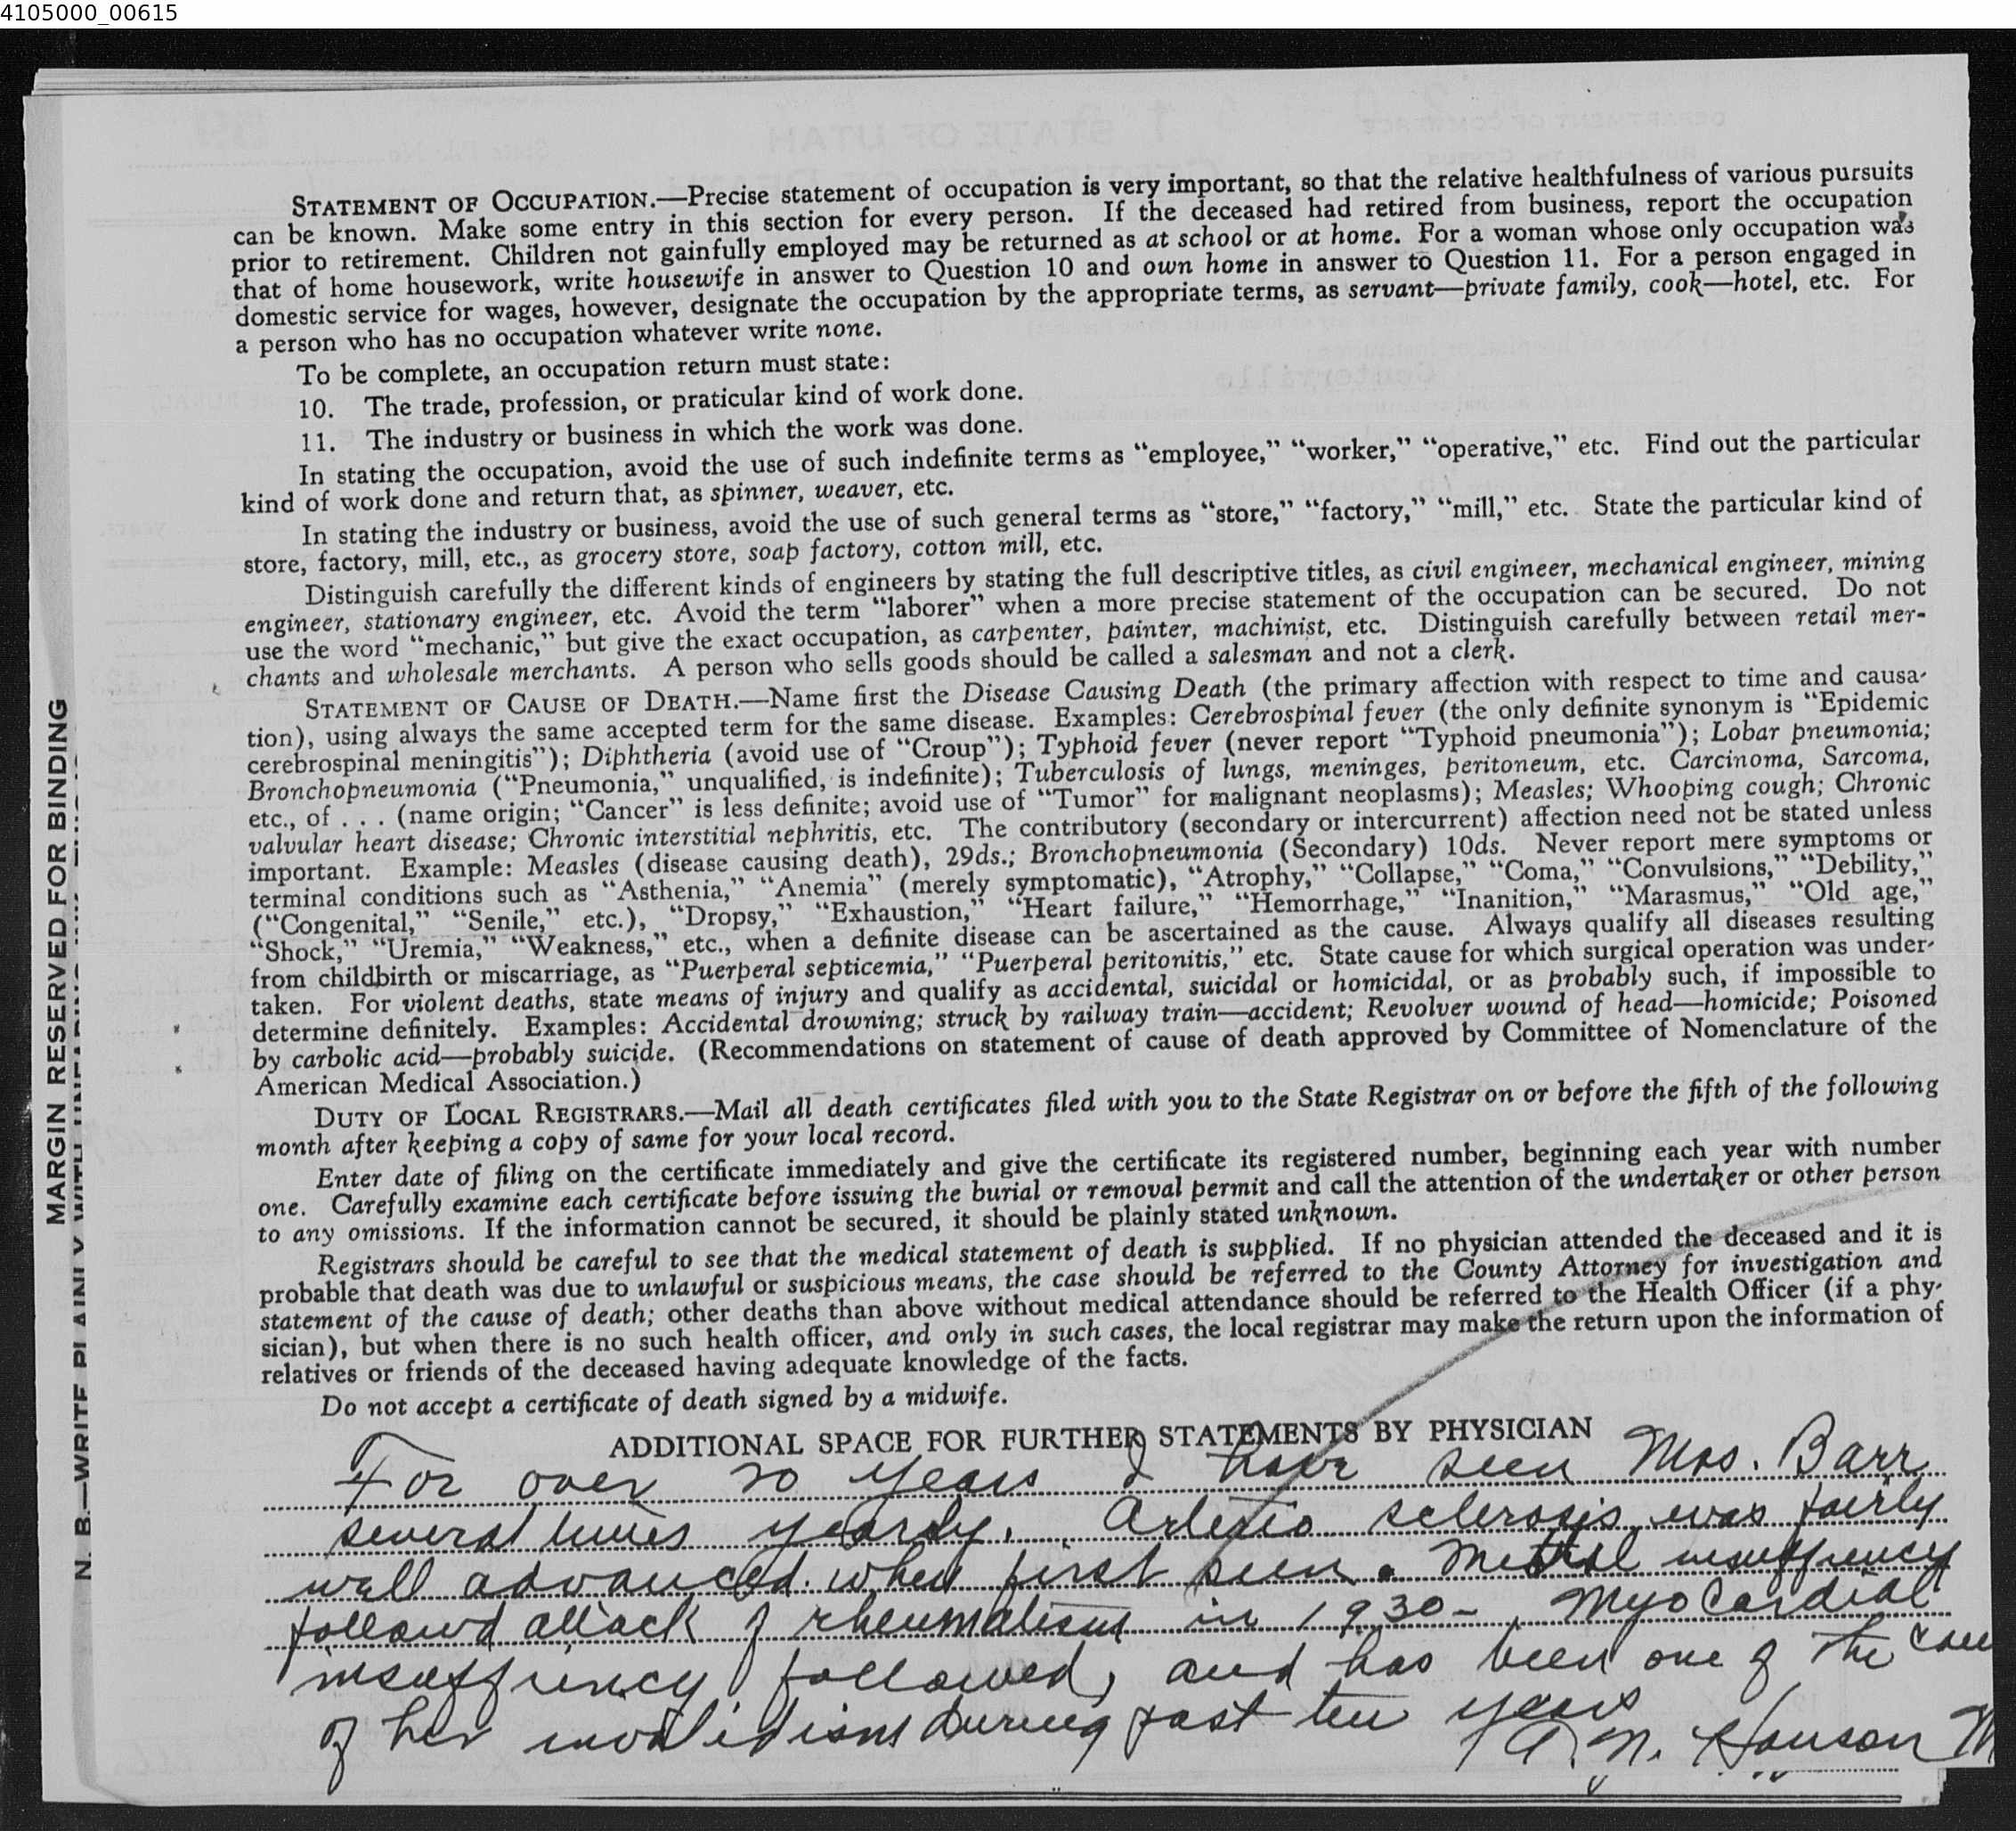 4105000_00615
STATEMENT OF OCCUPATION.—Precise statement of occupation is very important, so that the relative healthfulness of various pursuits
can be known. Make some entry in this section for every person. If the deceased had retired from business, report the occupation
prior to retirement. Children not gainfully employed may be returned as at school or at home. For a woman whose only occupation was
that of home housework, write housewife in answer to Question 10 and own home in answer to Question 11. For a person engaged in
domestic service for wages, however, designate the occupation by the appropriate terms, as servant—private family, cook—hotel, etc. For
a person who has no occupation whatever write none.
To be complete, an occupation return must state:
10. The trade, profession, or praticular kind of work done.
11. The industry or business in which the work was done.
In stating the occupation, avoid the use of such indefinite terms as “employee,” “worker,” “operative,” etc. Find out the particular
kind of work done and return that, as spinner, weaver, etc.
In stating the industry or business, avoid the use of such general terms as “store,” “factory,” “mill,” etc. State the particular kind of
store, factory, mill, etc., as grocery store, soap factory, cotton mill, etc.
Distinguish carefully the different kinds of engineers by stating the full descriptive titles, as civil engineer, mechanical engineer, mining
engineer, stationary engineer, etc. Avoid the term “laborer” when a more precise statement of the occupation can be secured. Do not
use the word “mechanic,” but give the exact occupation, as carpenter, painter, machinist, etc. Distinguish carefully between retail mer-
chants and wholesale merchants. A person who sells goods should be called a salesman and not a clerk.
STATEMENT OF CAUSE OF DEATH.—Name first the Disease Causing Death (the primary affection with respect to time and causa-
tion), using always the same accepted term for the same disease. Examples: Cerebrospinal fever (the only definite synonym is “Epidemic
cerebrospinal meningitis”); Diphtheria (avoid use of “Croup”); Typhoid fever (never report “Typhoid pneumonia”); Lobar pneumonia;
Bronchopneumonia (“Pneumonia,” unqualified, is indefinite); Tuberculosis of lungs, meninges, peritoneum, etc. Carcinoma, Sarcoma,
etc., of . . . (name origin; “Cancer” is less definite; avoid use of “Tumor” for malignant neoplasms); Measles; Whooping cough; Chronic
valvular heart disease; Chronic interstitial nephritis, etc. The contributory (secondary or intercurrent) affection need not be stated unless
important. Example: Measles (disease causing death), 29ds.; Bronchopneumonia (Secondary) 10ds. Never report mere symptoms or
terminal conditions such as “Asthenia,” “Anemia” (merely symptomatic), “Atrophy,” “Collapse,” “Coma,” “Convulsions,” “Debility,”
(“Congenital,” “Senile,” etc.), “Dropsy,” “Exhaustion,” “Heart failure,” “Hemorrhage,” “Inanition,” “Marasmus,” “Old age,”
“Shock,” “Uremia,” “Weakness,” etc., when a definite disease can be ascertained as the cause. Always qualify all diseases resulting
from childbirth or miscarriage, as “Puerperal septicemia,” “Puerperal peritonitis,” etc. State cause for which surgical operation was under-
taken. For violent deaths, state means of injury and qualify as accidental, suicidal or homicidal, or as probably such, if impossible to
determine definitely. Examples: Accidental drowning; struck by railway train—accident; Revolver wound of head—homicide; Poisoned
by carbolic acid—probably suicide. (Recommendations on statement of cause of death approved by Committee of Nomenclature of the
American Medical Association.)
DUTY OF LOCAL REGISTRARS.—Mail all death certificates filed with you to the State Registrar on or before the fifth of the following
month after keeping a copy of same for your local record.
Enter date of filing on the certificate immediately and give the certificate its registered number, beginning each year with number
one. Carefully examine each certificate before issuing the burial or removal permit and call the attention of the undertaker or other person
to any omissions. If the information cannot be secured, it should be plainly stated unknown.
Registrars should be careful to see that the medical statement of death is supplied. If no physician attended the deceased and it is
probable that death was due to unlawful or suspicious means, the case should be referred to the County Attorney for investigation and
statement of the cause of death; other deaths than above without medical attendance should be referred to the Health Officer (if a phy-
sician), but when there is no such health officer, and only in such cases, the local registrar may make the return upon the information of
relatives or friends of the deceased having adequate knowledge of the facts.
Do not accept a certificate of death signed by a midwife.
ADDITIONAL SPACE FOR FURTHER STATEMENTS BY PHYSICIAN
For over 20 years I have seen Mrs. Barr
several times yearly. Arterio sclerosis was fairly
well advanced when first seen. Mitral insuffiency
followd attack of rheumatism in 1930-. Myocardial
insuffiency followed, and has been one of the
of her invalidism during past ten years
A. N. Hanson M
MARGIN RESERVED FOR BINDING
N. B.—WRITE PLAINLY WITH